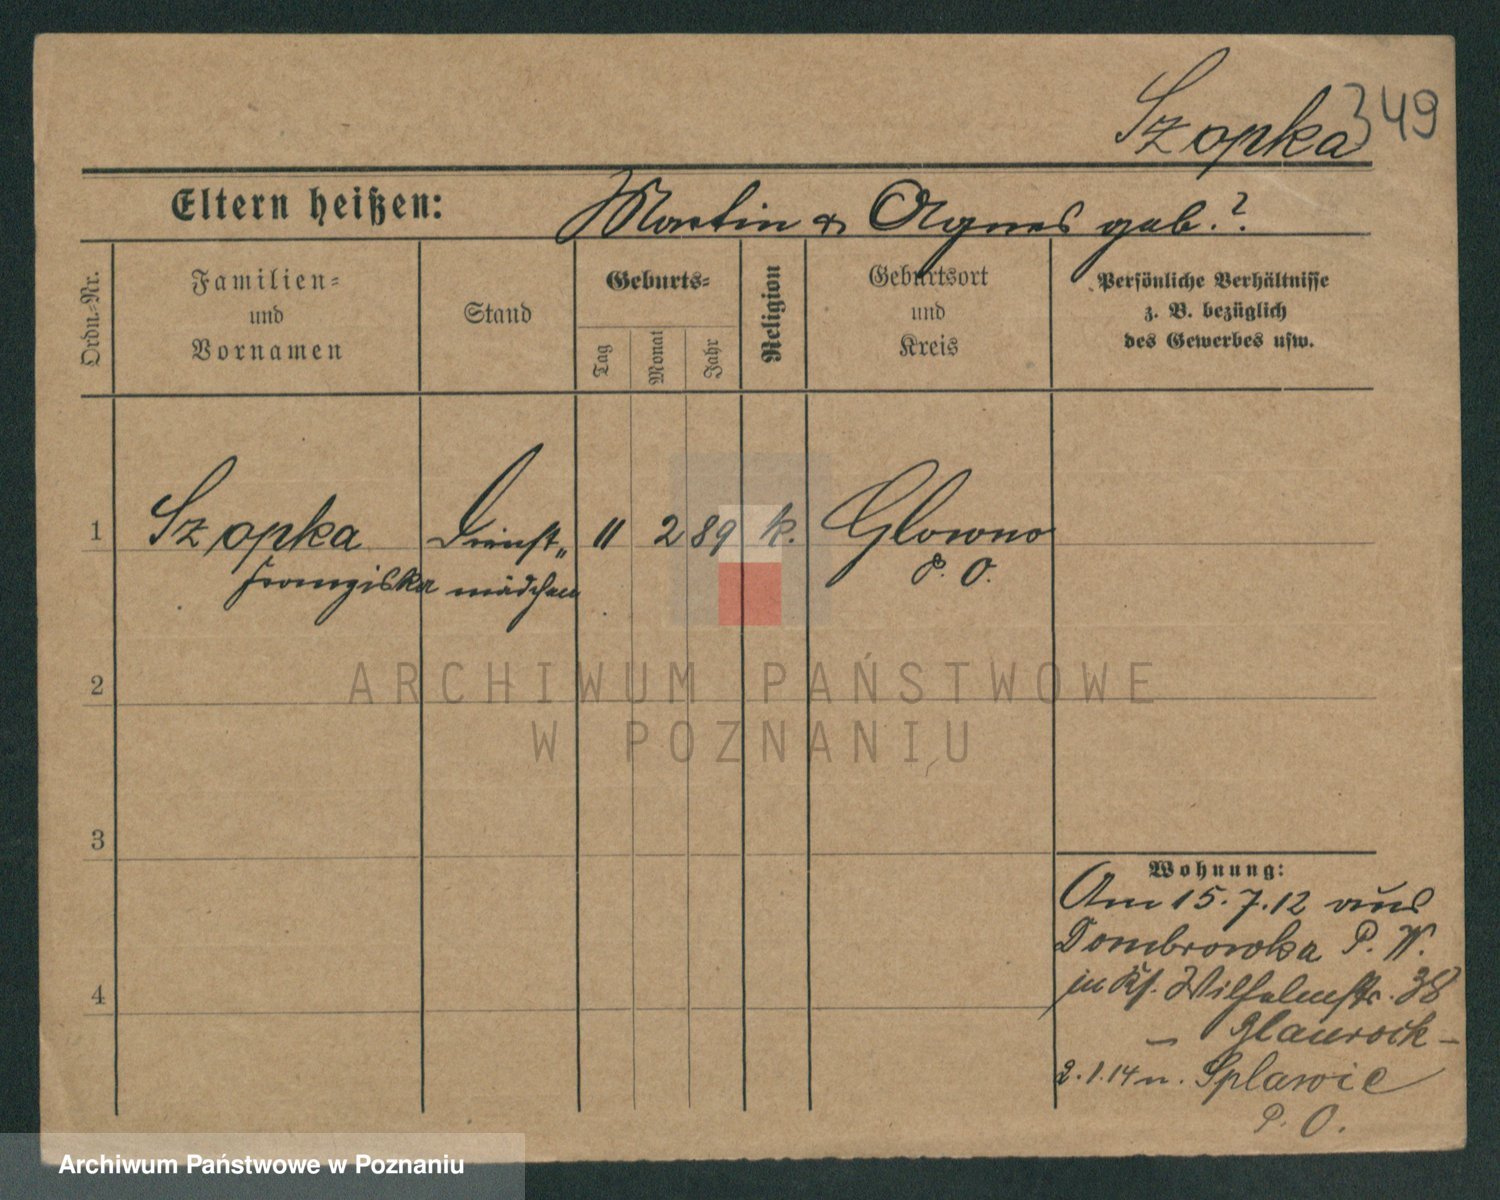 Szopka 349
Eltern heißen: Martin & Agnes geb. ?
Ordn.-Nr.
Familien-
und
Vornamen
Stand
Geburts-
Tag
Monat
Jahr
Religion
Geburtsort
und
Kreis
Persönliche Verhältnisse
z. B. bezüglich
des Gewerbes usw.
1 Szopka Dienst„ 11 2 89 k. Glowno
Franziska mädchen P. O.
2
3
4
Wohnung:
Am 15.7.12 aus
Dombrowka P. W.
in Wilhelmstr. 38
– Blaurock –
2.1.14 n. Splawie
P. O.
ARCHIWUM PAŃSTWOWE
W POZNANIU
Archiwum Państwowe w Poznaniu